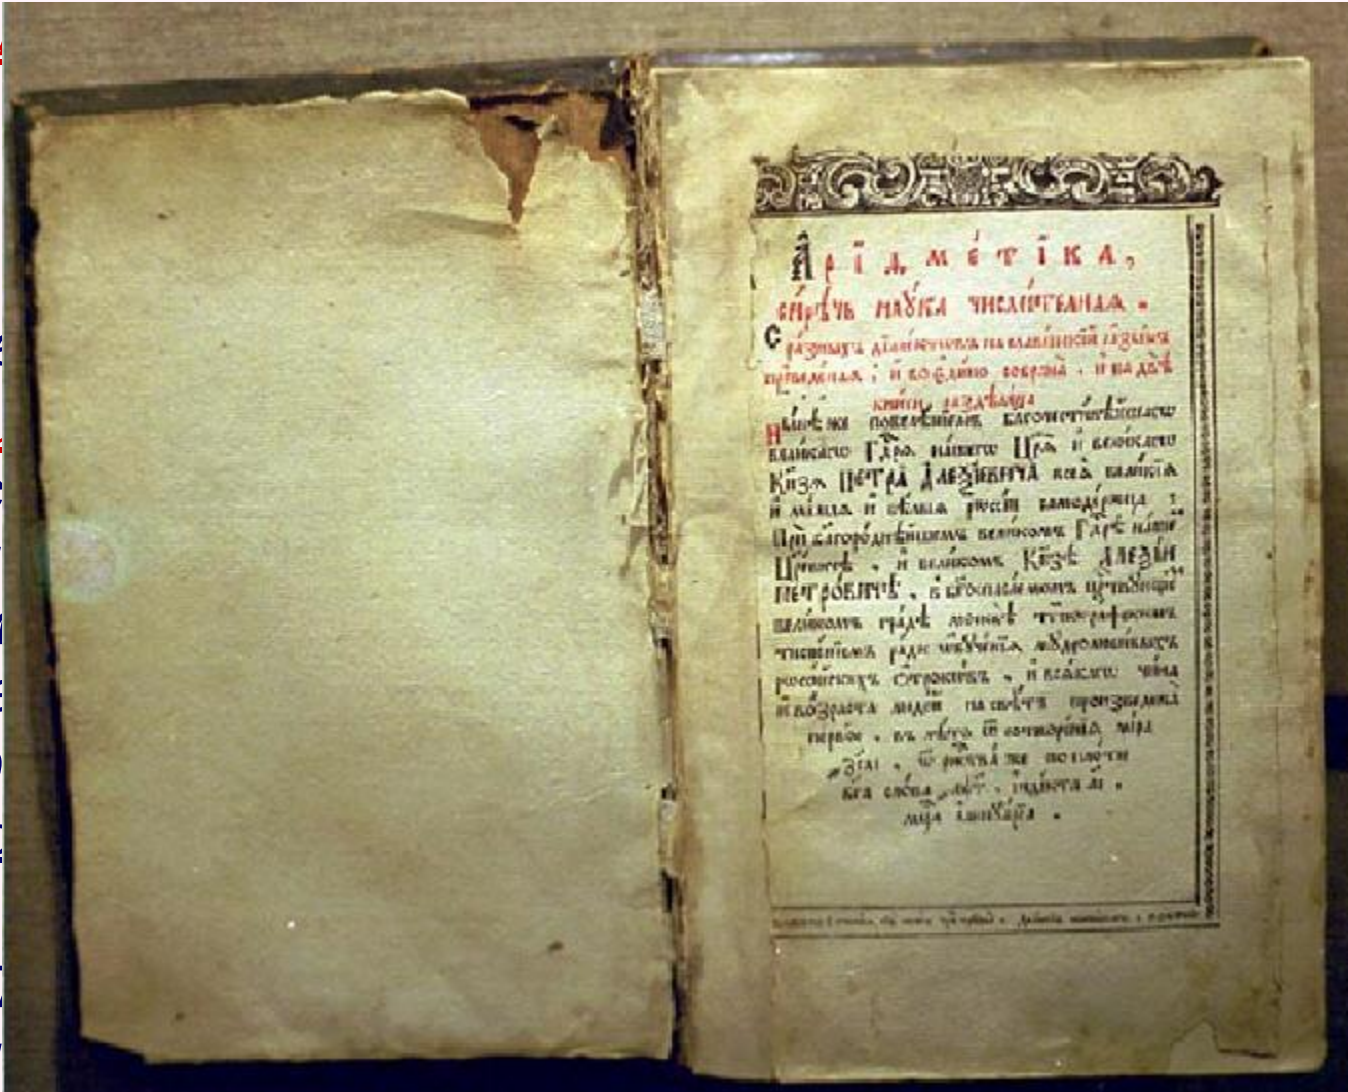 Арїѳметїка,
сирѣчь наука числителная.
С разныхъ дїалектовъ на славенскїй языкъ
преведеная, и во едино собрана, и на двѣ
книги раздѣлена.
Нынѣ же повелѣнїемъ благочестивѣйшагѡ
великагѡ Гдⷭ҇рѧ нашегѡ Цр҃ѧ и великагѡ
Кн҃зѧ ПЕТРА АЛЕѮІЕВИЧА всеѧ великїѧ
и малыѧ и бѣлыѧ рѡссїи самодержца:
При благороднѣйшемъ великомъ Гдⷭ҇рѣ нашемъ
Цр҃евичѣ, и великомъ Кн҃зѣ АЛЕѮІИ
ПЕТРОВИЧѢ, в богоспасаемомъ царствующемъ
великомъ градѣ москвѣ тѷпографскимъ
тисненїемъ ради ѡбученїѧ мудролюбивыхъ
рѡссїйскихъ ѻтрокѡвъ, и всѧкагѡ чина
и возраста людей на свѣтъ произведена
первое, въ лѣто ѿ сотворенїѧ мїра
҂зсаі, ѿ ржⷭ҇тва же по плоти
бг҃а слова ҂аѱг, индїкта аі,
мцⷭ҇а їаннуарїа.